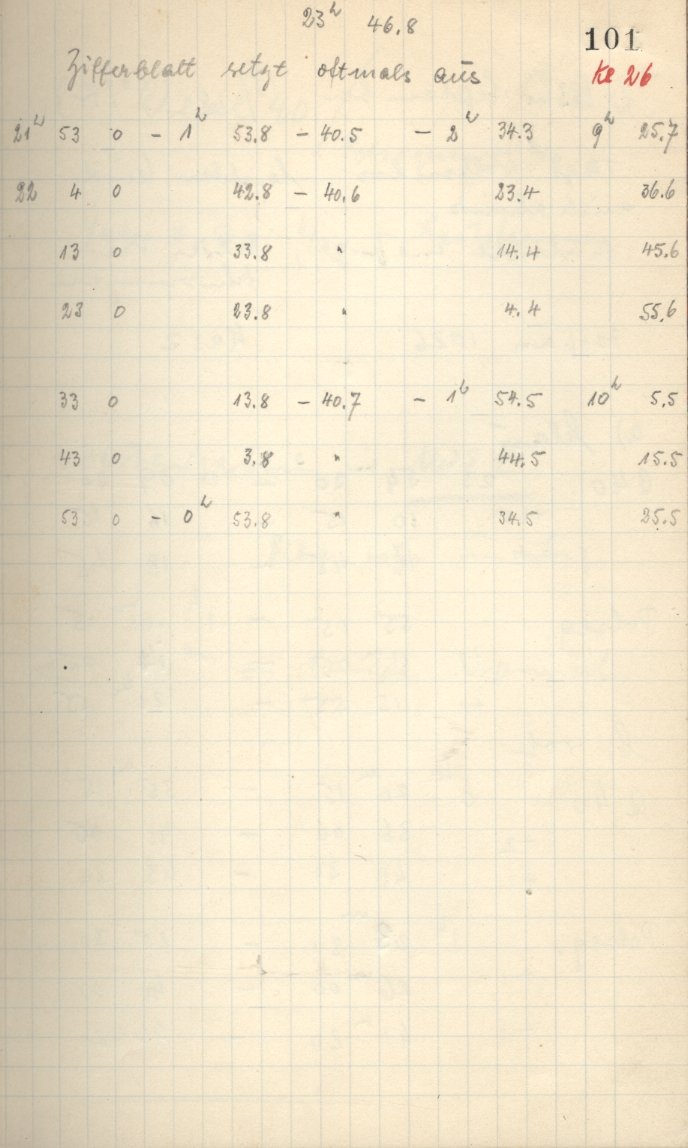 23h 46.8
101
Zifferblatt setzt oftmals aus
Ke 26
21h 53 0 - 1h 53.8 - 40.5 - 2h 34.3 9h 25.7
22 4 0 42.8 - 40.6 23.4 36.6
13 0 33.8 " 14.4 45.6
23 0 23.8 " 4.4 55.6
33 0 13.8 - 40.7 - 1h 54.5 10h 5.5
43 0 3.8 " 44.5 15.5
53 0 - 0h 53.8 " 34.5 25.5